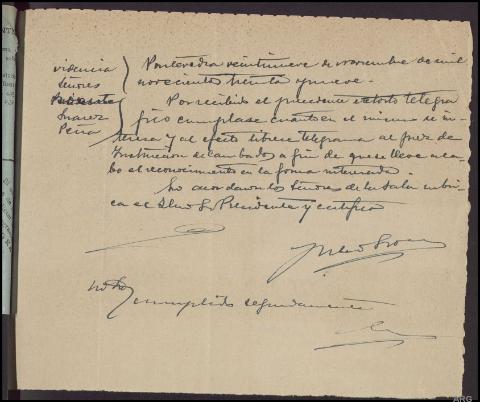 Providencia
Señores
Presidente
Suarez
Peña
Pontevedra veintinueve de noviembre de mil
novecientos treinta y nueve.
Por recibido el precedente exhorto telegra
fico cumplase cuanto en el mismo se in-
teresa y al efecto librese telegrama al Juez de
Instruccion de Cambados a fin de que se lleve a ca-
bo el reconocimiento en la forma interesada.
Lo acordaron los Señores de la Sala rubri-
ca el Ilmo Sr. Presidente y certifico
Nota
cumplido seguidamente
ARG